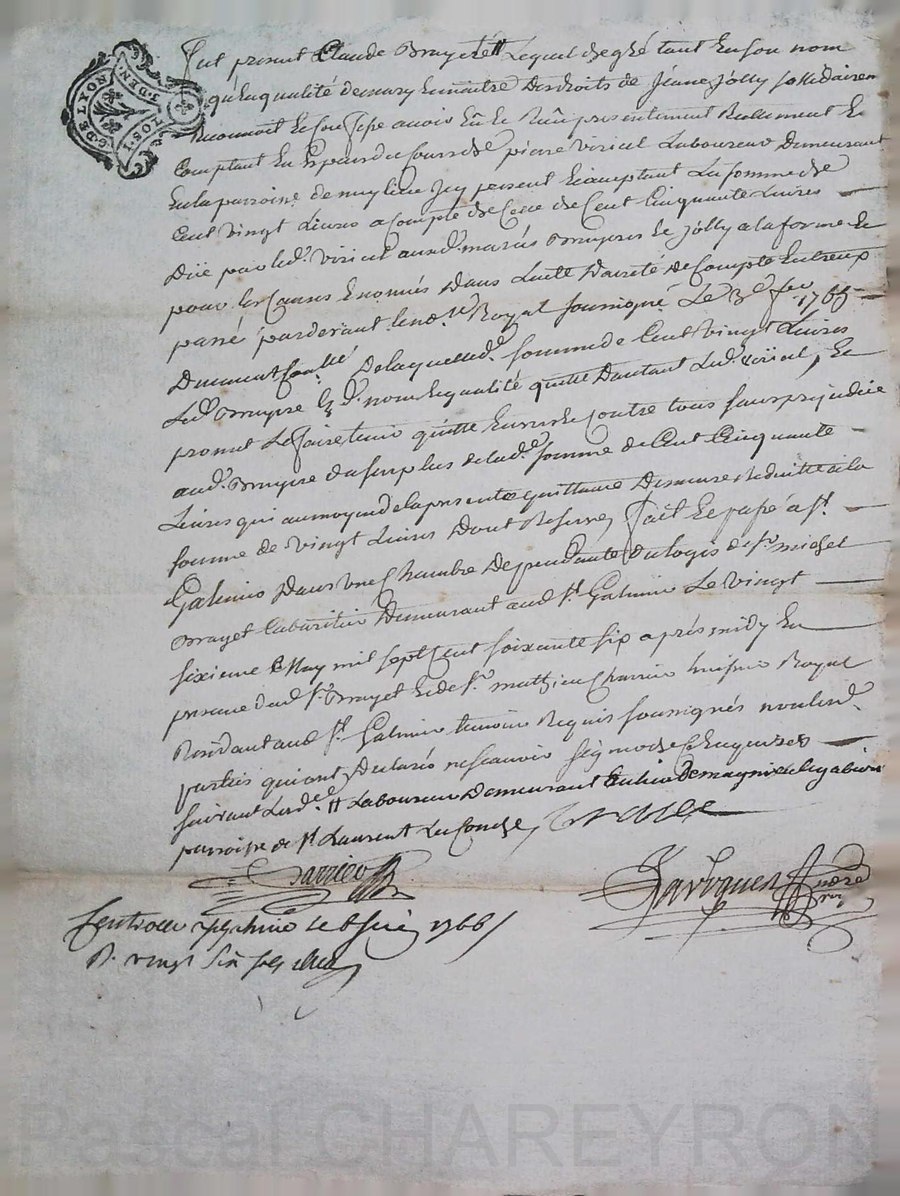 G. DE LYON
MOY. P. 1. S. 1. DEN.
Fut present Claude Bruyere tt Lequel de gré tant En son nom
qu'En qualité de mary Et maitre Des droits de Jeane Jolly sa
Reconnoit Et Confesse avoir Eû Et Reçû presentement Reellement Et
Comptant En Especes du Cours de pierre virieul Laboureur Demeurant
En la parroisse de Icy present Et acceptant La somme de
Cent Vingt Livres a Compte de Celle de Cent Cinquante Livres
Düe par led. Virieul aud. mariés Bruyere Et Jolly a la forme Et
pour les Causes Enoncés Dans L'acte D'areté De Compte Entreux
passé pardevant le no.re Royal soussigné Le 3e fev 1765
Duement Con.llé De laquelle d. somme de Cent Vingt Livres
Led. Bruyere Esd. nom Et qualité quitte D'autant Led. virieul, Et
promet Le faire tenir quitte Envers Et Contre tous sans prejudice
aud. Bruyere du surplus de lad. somme de Cent Cinquante
Livres qui au moyen de la presente quittance Demeure Reduitte a la
somme de Vingt Livres Dont Reserve, fait Et passé a St.
Galmier Dans une Chambre Dependante du logis de Sr. michel
Brayet Cabaretier Demeurant aud. St. Galmier Le Vingt
sixieme May mil sept Cent soixante six après midy En
presence dud. Sr. Brayet Et de Sr. mathieu Charrin huissier Royal
Residant aud. St. Galmier temoins Requis soussignés non lesd.
parties qui ont Declarés ne scavoir signer de Ce Enquises
suivant L'ord.ce tt Laboureur Demeurant
parroisse de St. Laurent La Conche,
Controllé a St Galmier le 6 juin 1766
R. vingt six sols
Pascal CHAREYRON